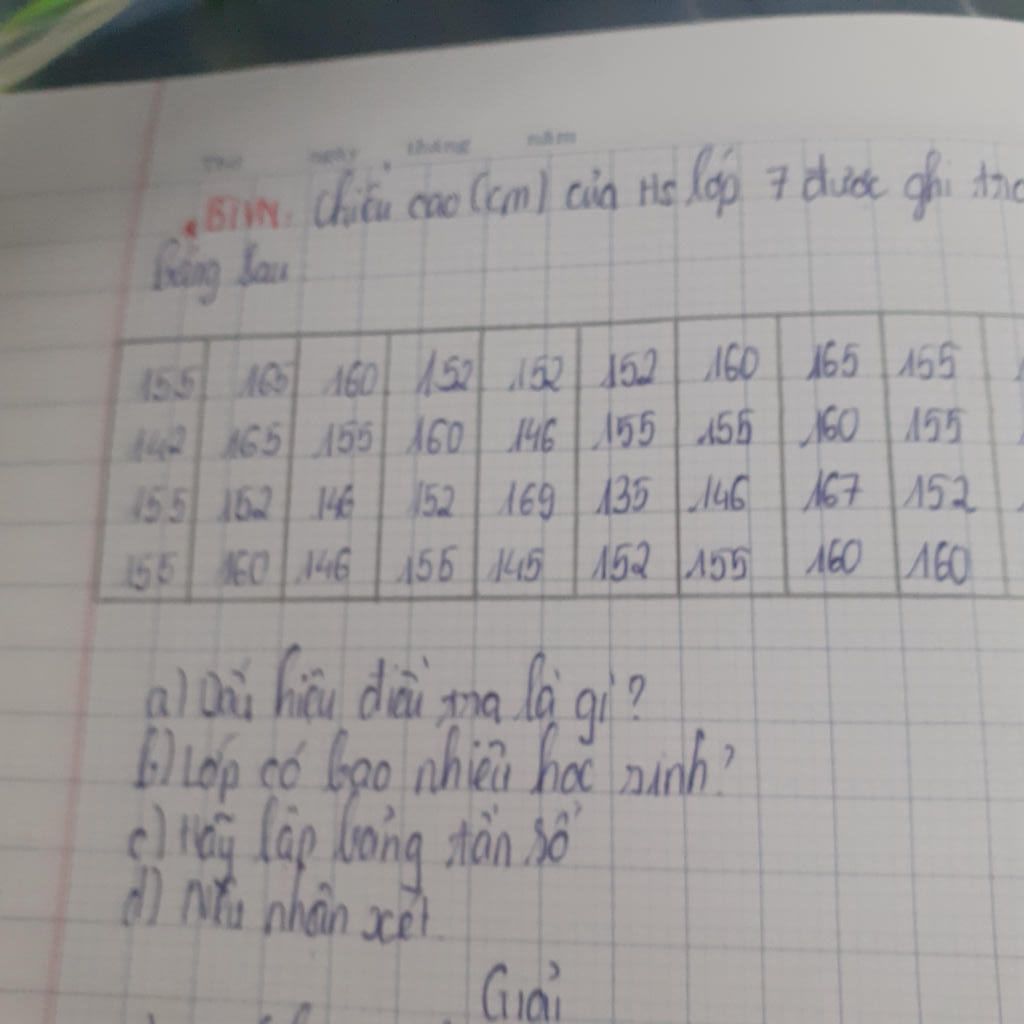 Thứ ngày tháng năm
BTVN. Chiều cao (cm) của Hs lớp 7 được ghi
Bảng sau
155 165 160 152 152 152 160 165 155
142 165 155 160 146 155 155 160 155
155 152 146 152 169 135 146 167 152
155 160 146 155 145 152 155 160 160
a) Dấu hiệu điều tra là gì?
b) Lớp có bao nhiêu học sinh?
c) Hãy lập bảng tần số
d) Nêu nhận xét.
Giải